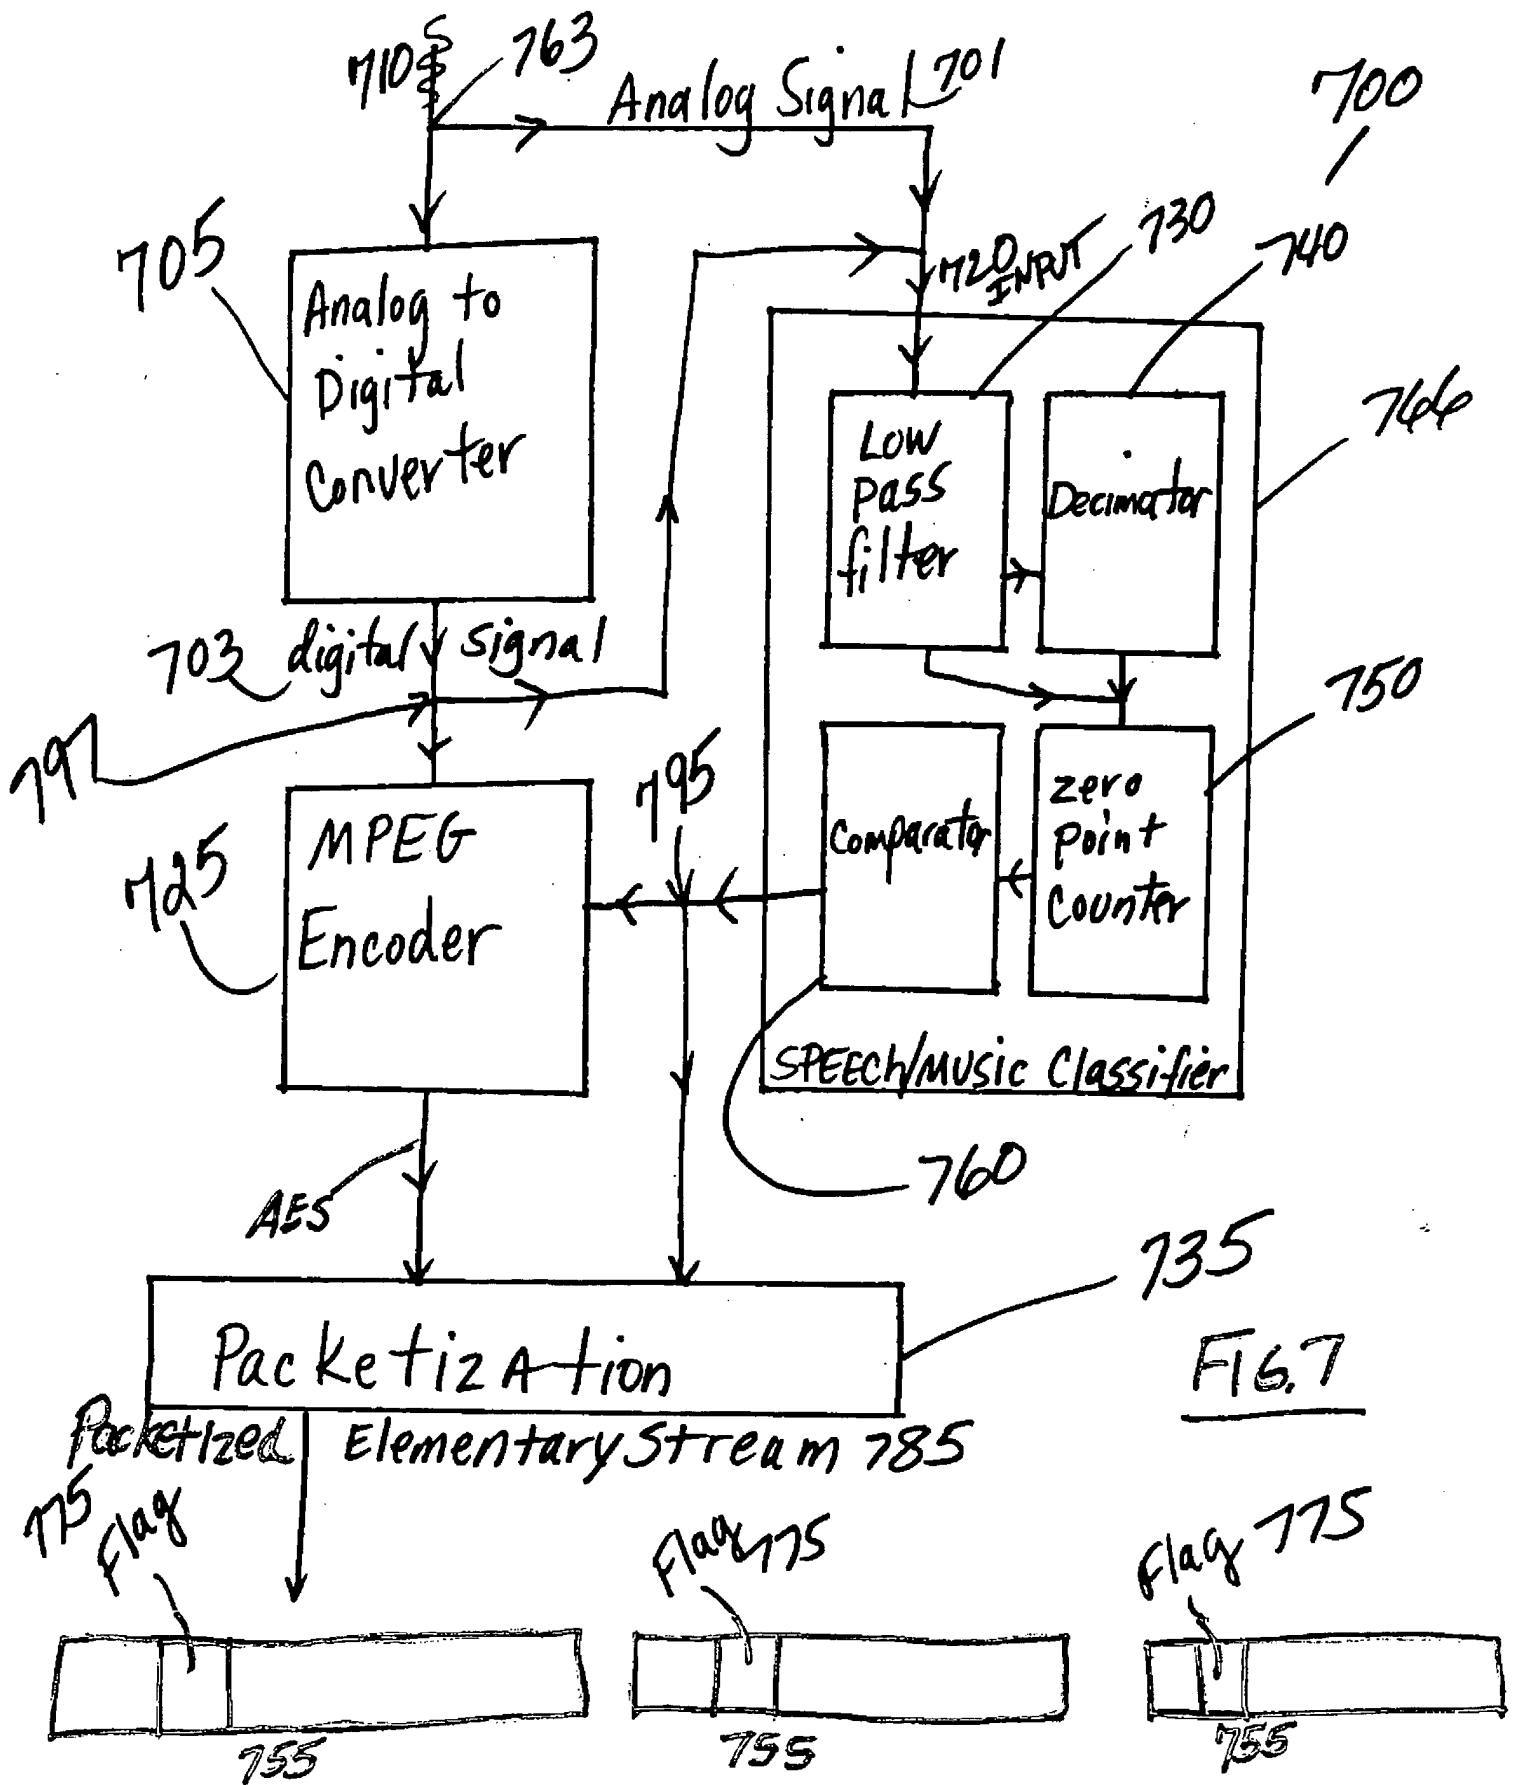 710
763
Analog Signal 701
700
705
730
740
720
INPUT
Analog to
Digital
Converter
Low
Pass
filter
Decimator
766
703 digital signal
797
750
795
MPEG
Encoder
725
Comparator
zero
Point
Counter
SPEECh/Music Classifier
760
AES
735
PacketizAtion
FIG. 7
Packetized Elementary Stream 785
775
Flag
Flag 775
Flag 775
755
755
755